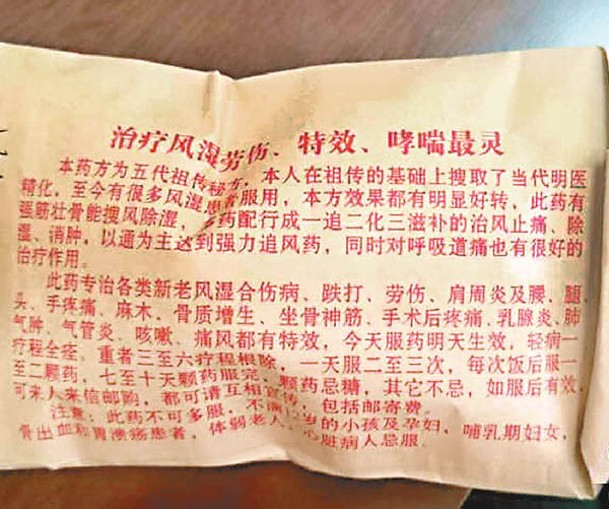 治疗风湿劳伤、特效、哮喘最灵
本药方为五代祖传秘方，本人在祖传的基础上搜取了当代明医
精化，至今有很多风湿患者服用，本方效果都有明显好转，此药有
强筋壮骨能搜风除湿，药配行成一追二化三滋补的治风止痛、除
湿、消肿，以通为主达到强力追风药，同时对呼吸道痛也有很好的
治疗作用。
此药专治各类新老风湿合伤病、跌打、劳伤、肩周炎及腰、腿、
头、手疼痛、麻木、骨质增生、坐骨神筋、手术后疼痛、乳腺炎、肺
气肿、气管炎、咳嗽、痛风都有特效，今天服药明天生效，轻病一
疗程全痊，重者三至六疗程根除，一天服二至三次，每次饭后服一
至二颗药，七至十天颗药服完，颗药忌糖，其它不忌，如服后有效，
可来人来信邮购，都可请互相宣传，包括邮寄费。
注意：此药不可多服，不满岁的小孩及孕妇，哺乳期妇女，
骨出血和胃溃疡患者，体弱老人，心脏病人忌服。